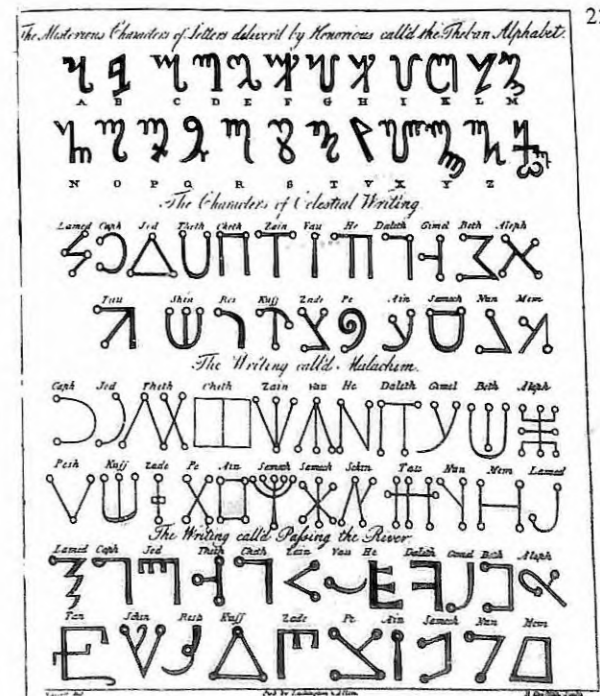 The Mysterious Characters of Letters deliver'd by Honorious call'd the Theban Alphabet.
A B C D E F G H I K L M
N O P Q R S T V X Y Z
The Characters of Celestial Writing.
Lamed Caph Jod Theth Cheth Zain Vau He Daleth Gimel Beth Aleph
Tau Shin Res Kuff Zade Pe Ain Samech Nun Mem
The Writing call'd Malachim.
Caph Jod Theth Cheth Zain Vau He Daleth Gimel Beth Aleph
Resh Kuff Zade Pe Ain Samech Samech Schin Tau Nun Mem Lamed
The Writing call'd Passing the River.
Lamed Caph Jod Theth Cheth Zain Vau He Daleth Gimel Beth Aleph
Tau Schin Resh Kuff Zade Pe Ain Samech Nun Mem